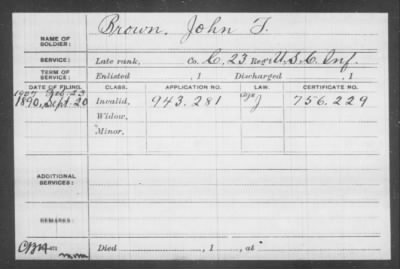 NAME OF SOLDIER: Brown, John F.
SERVICE: Late rank, Co. C, 23 Reg't U.S.C. Inf.
TERM OF SERVICE: Enlisted , 1 Discharged , 1
DATE OF FILING. CLASS. APPLICATION NO. LAW. CERTIFICATE NO.
1907 Feb. 23
1890, Sept. 20 Invalid, 943.281 J 756.229
Widow,
Minor,
ADDITIONAL SERVICES:
REMARKS:
Died , 1 , at